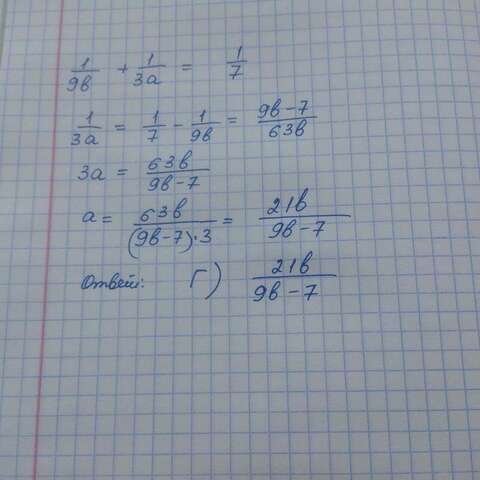 1/9в + 1/3а = 1/7
1/3а = 1/7 - 1/9в = 9в-7/63в
3а = 63в/9в-7
а = 63в/(9в-7)·3 = 21в/9в-7
Ответ: Г) 21в/9в-7